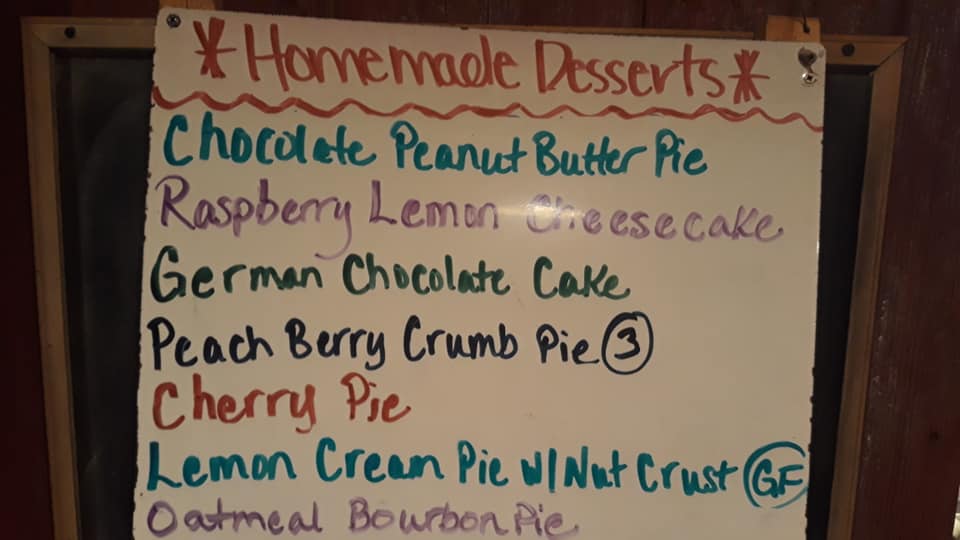 *Homemade Desserts*
Chocolate Peanut Butter Pie
Raspberry Lemon Cheesecake
German Chocolate Cake
Peach Berry Crumb Pie 3
Cherry Pie
Lemon Cream Pie w/Nut Crust GF
Oatmeal Bourbon Pie